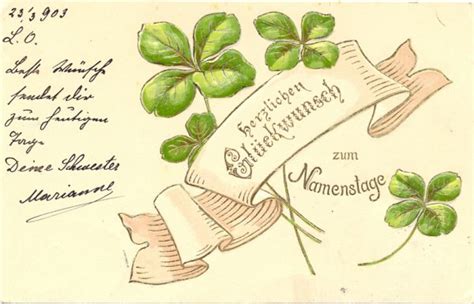 23/3 903
L. O.
Beste Wünsche
sendet dir
zum heutigen
Tage
Deine Schwester
Marianne
Herzlichen
Glückwunsch
zum
Namenstage